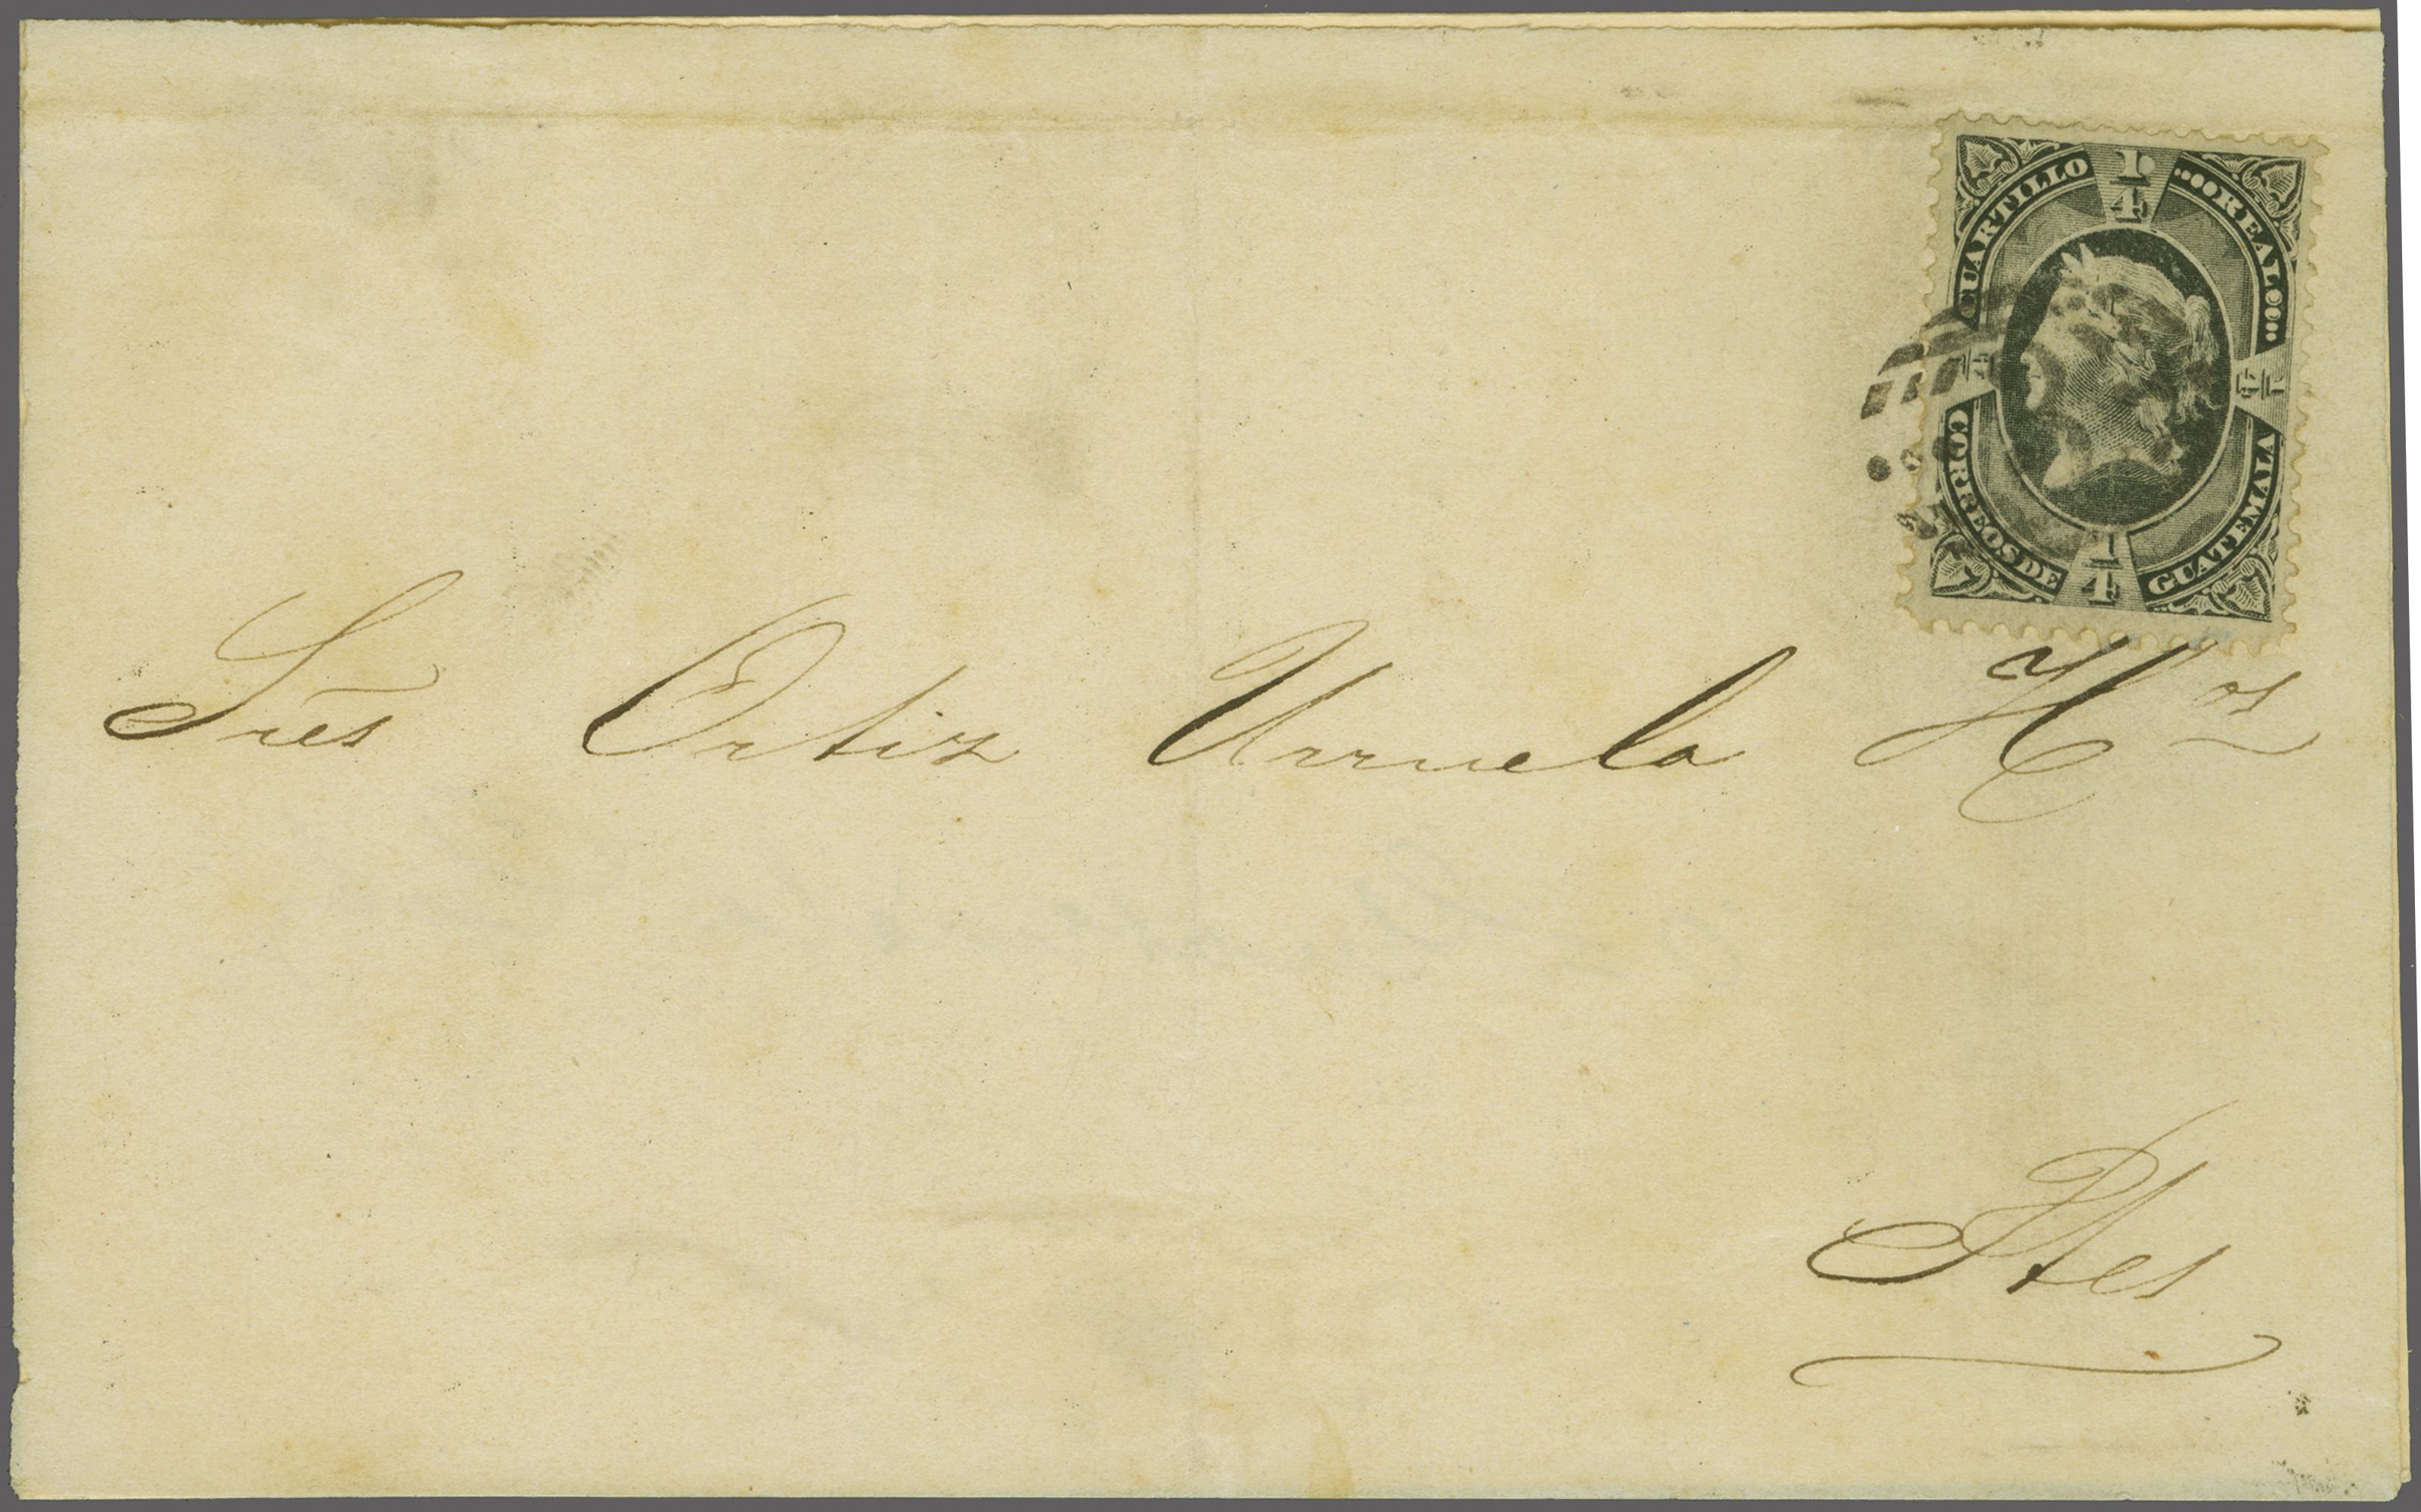 CUARTILLO 1/4 REAL
1/4 1/4
CORREOS DE 1/4 GUATEMALA
Sres Ortiz Urruela Hos
Ptes